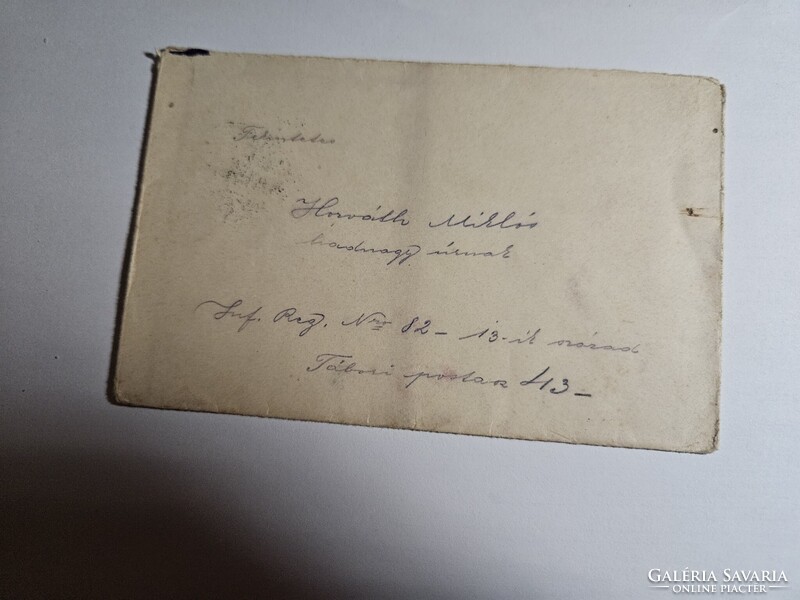 Tekintetes
Horváth Miklós
hadnagy úrnak
Inf. Reg. Nro 82 - 13-ik század
Tábori posta 413 -
GALÉRIA SAVARIA
ONLINE PIACTÉR